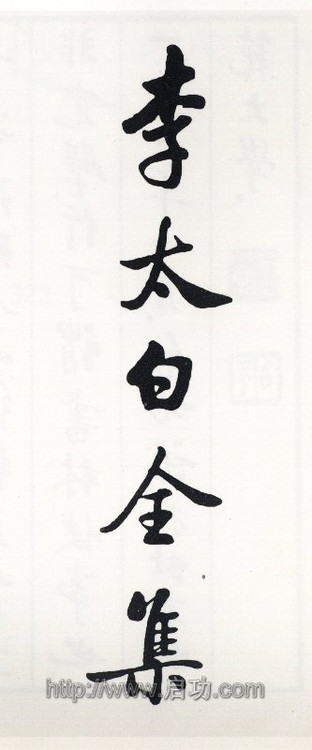 李太白全集
http://www.启功.com